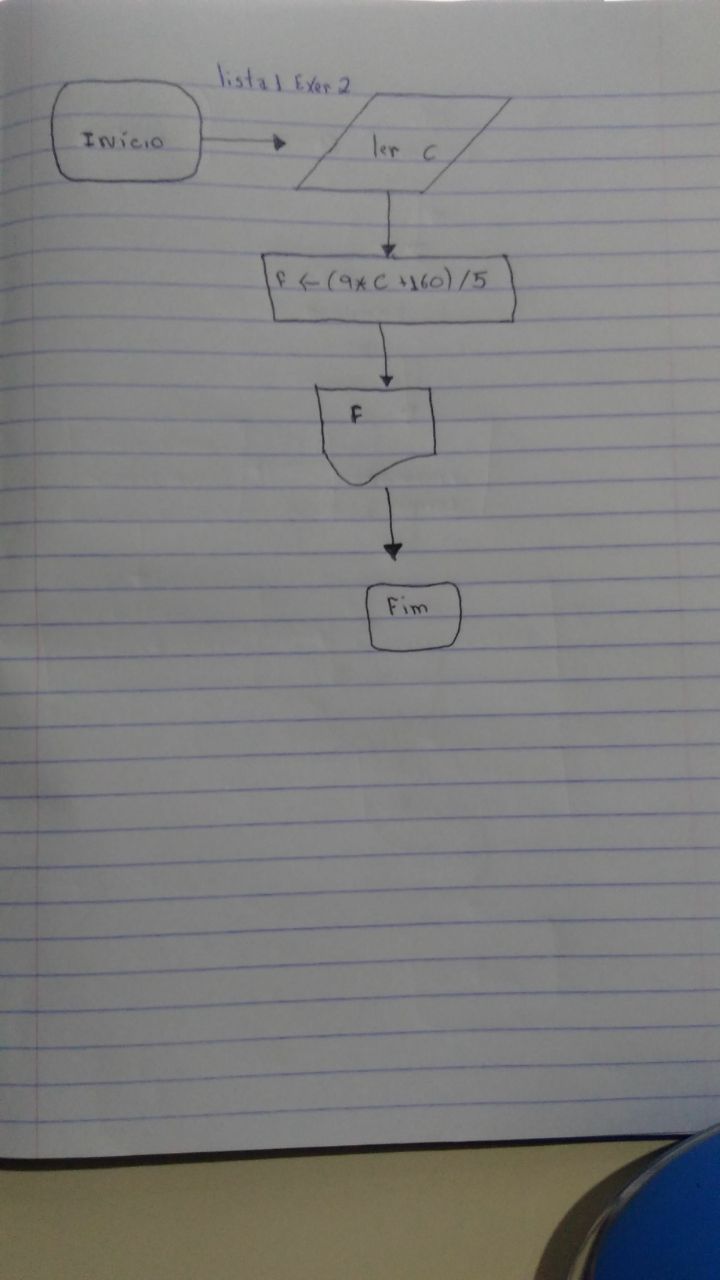 lista 1 Exer 2
Início
ler C
F ← (9*C+160)/5
F
Fim